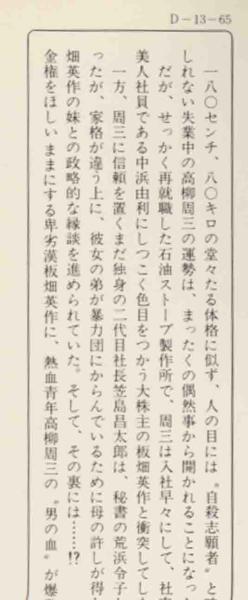 D-13-65
一八〇センチ、八〇キロの堂々たる体格に似ず、人の目には〝自殺志願者〟と
しれない失業中の高柳周三の運勢は、まったくの偶然事から開かれることになっ
だが、せっかく再就職した石油ストーブ製作所で、周三は入社早々にして、社
美人社員である中浜由利にしつこく色目をつかう大株主の板畑英作と衝突してし
一方、周三に信頼を置くまだ独身の二代目社長笠島昌太郎は、秘書の荒浜令子
ったが、家格が違う上に、彼女の弟が暴力団にからんでいるために母の許しが得
畑英作の妹との政略的な縁談を進められていた。そして、その裏には……!?
金権をほしいままにする卑劣漢板畑英作に、熱血青年高柳周三の〝男の血〟が爆